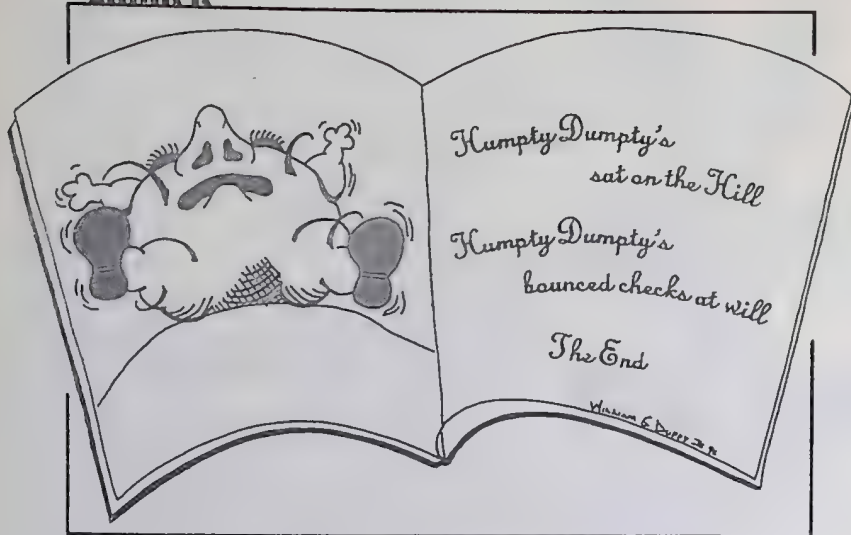 Humpty Dumpty's
sat on the Hill
Humpty Dumpty's
bounced checks at will
The End
William G Duffy Jr 92